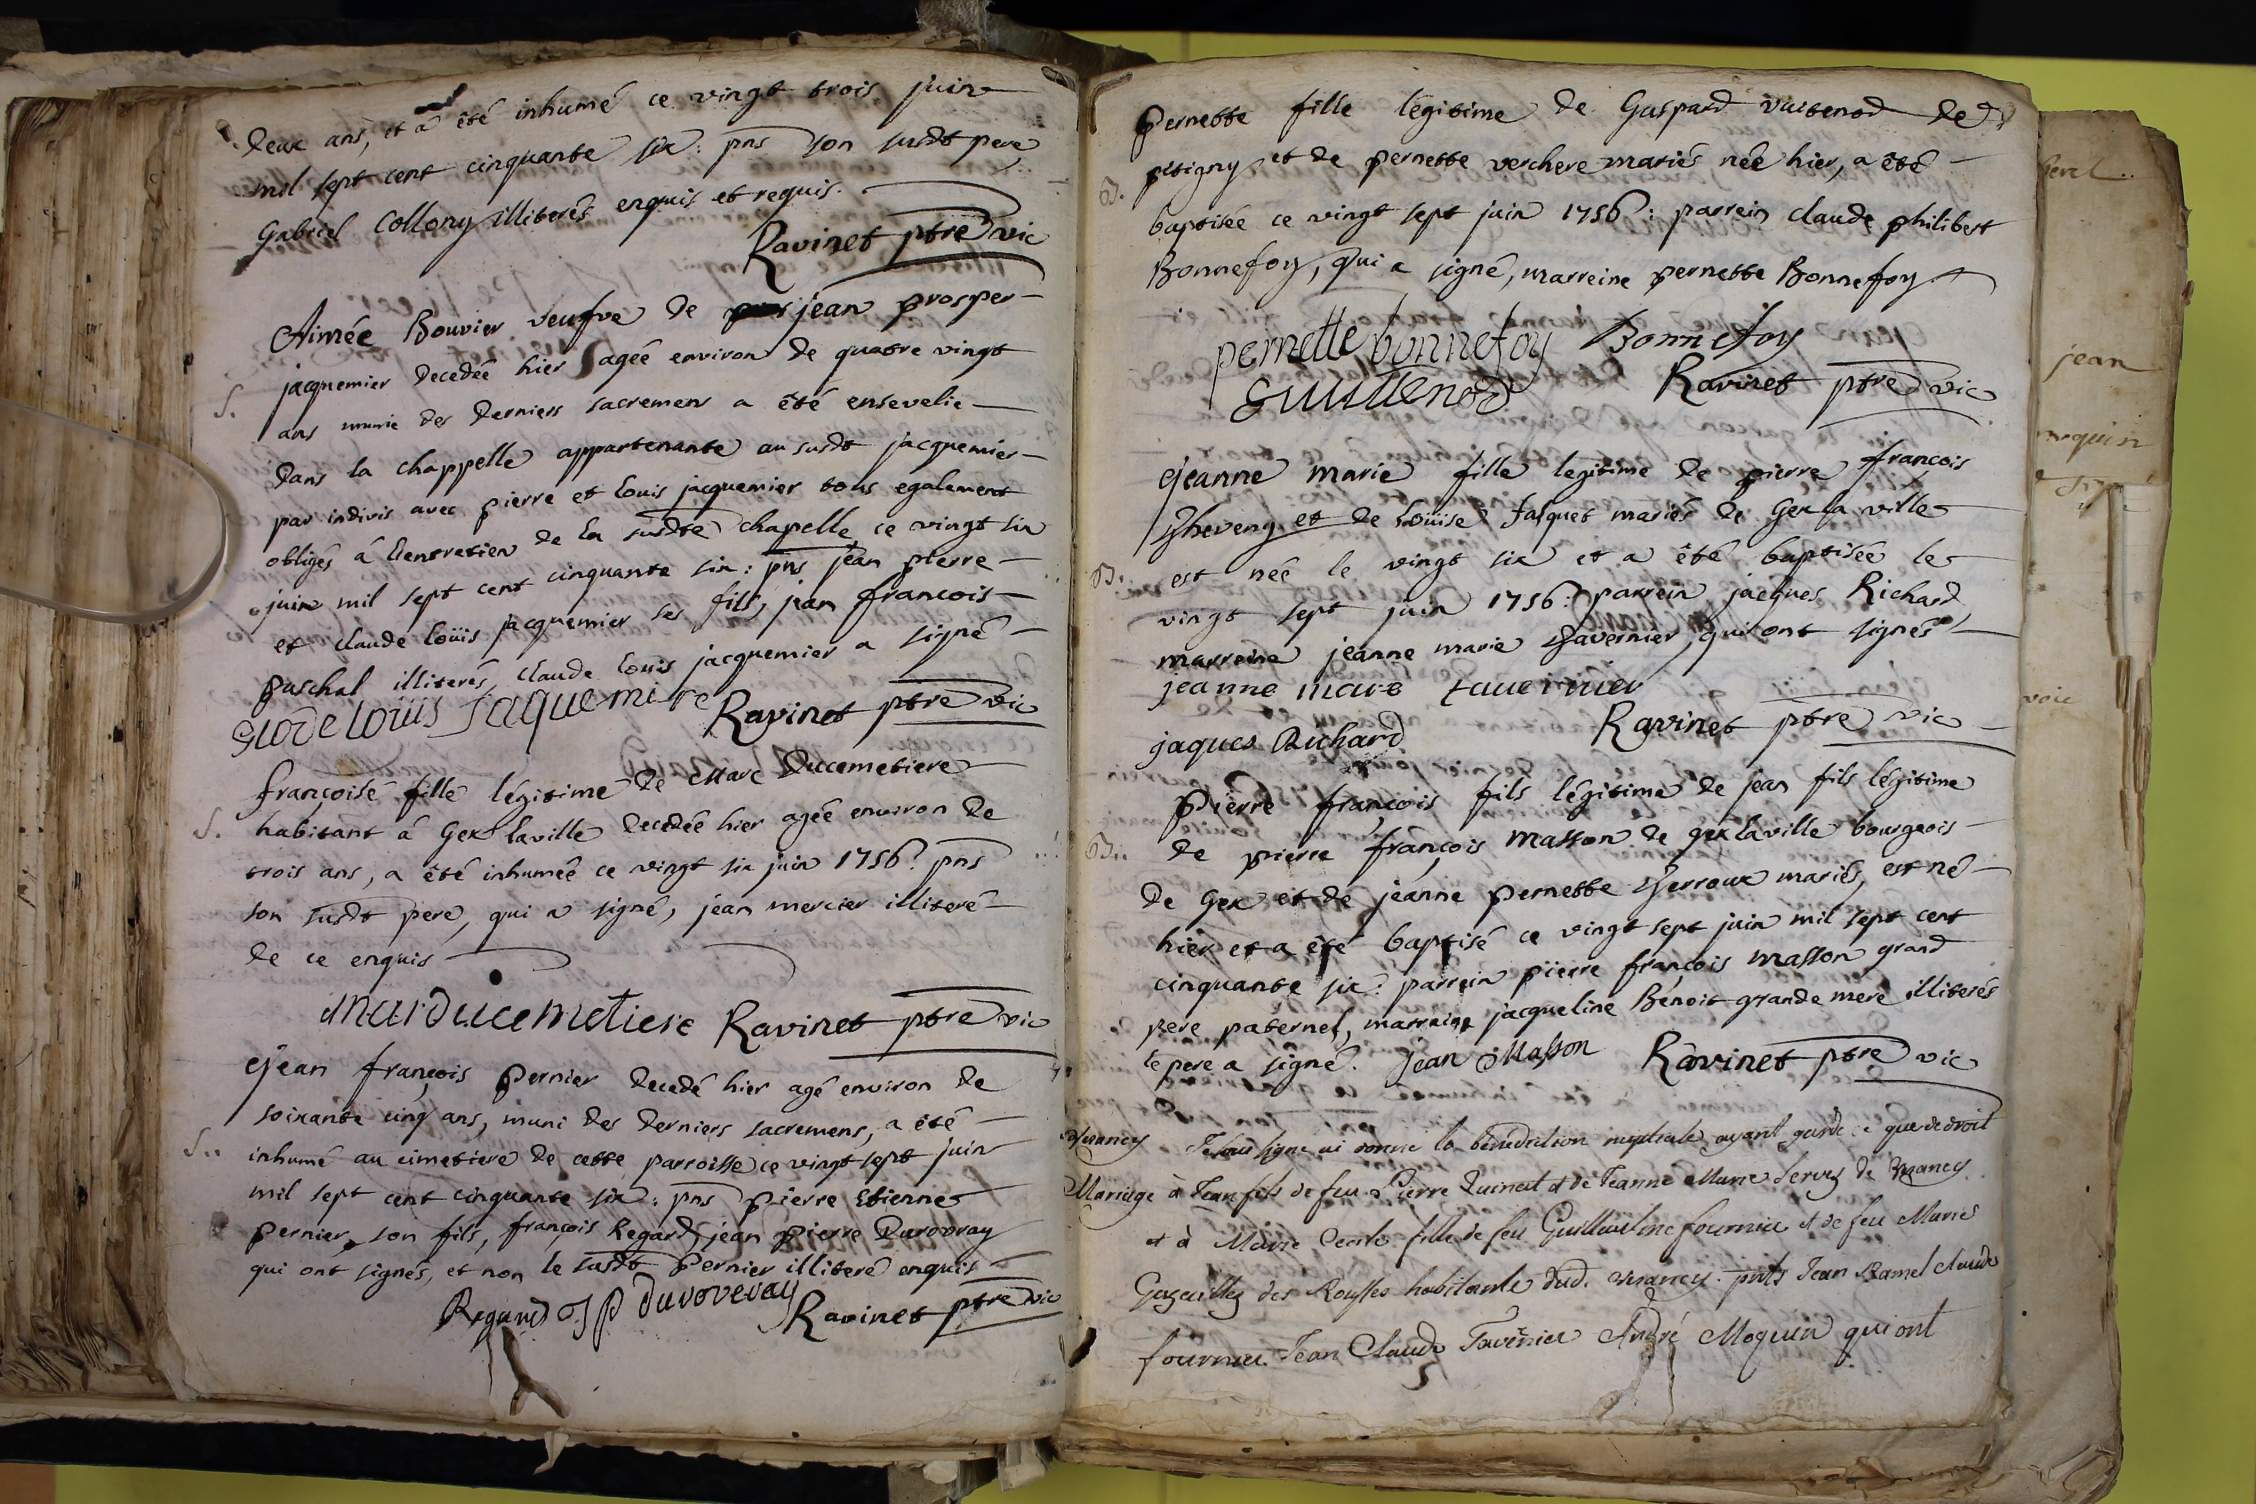 deux ans, et a été inhumé ce vingt trois juin
mil sept cent cinquante six : pns son susdt pere
Gabriel Collony illiterés enquis et requis.
Ravinet ptre vic
Aimée Bouvier veufve de jean prosper
S. jacquemier decedée hier agée environ de quatre vingt
ans munie des derniers sacremens a été ensevelie
dans la chappelle appartenante au susdt jacquemier
par indivis avec pierre et louis jacquemier tous egalement
obligés á l'entretien de la susdte chapelle, ce vingt six
juin mil sept cent cinquante six : pns jean pierre
et claude loüis jacquemier ses fils, jean francois
paschal illiterés, claude louis jacquemier a signé
glode loüis jaquemire Ravinet ptre vic
françoise fille légitime de Marc Ducemetiere
S. habitant á Gex laville decedée hier agée environ de
trois ans, a été inhumée ce vingt six juin 1756 : pns
son susdt pere, qui a signé, jean mercier illiteré
de ce enquis
mar ducemetiere Ravinet ptre vic
jean françois pernier decedé hier agé environ de
soixante cinq ans, muni des derniers sacremens, a été
S.. inhumé au cimetiere de cette parroisse ce vingt sept juin
mil sept cent cinquante six : pns pierre Etienne
pernier son fils, françois Regard, jean pierre Duroveray
qui ont signés, et non le susdt Pernier illiteré enquis
Regard JP duroveray Ravinet ptre vic
pernette fille légitime de Gaspard vuitenod de
pitigny et de pernette verchere mariés née hier, a été
B. baptisée ce vingt sept juin 1756 : parrein claude philibert
Bonnefoy, qui a signé, marreine pernette Bonnefoy
pernette bonnefoy Bonnefoy
Ravinet ptre vic
jeanne marie fille legitime de pierre françois
et de Louise Jasquet mariés de Gex la ville
B. est née le vingt six et a été baptisée le
vingt sept juin 1756 : parrein jacques Richard
marreine jeanne marie tavernier, qui ont signés
jeanne marie
jaques Richard Ravinet ptre vic
pierre françois fils légitime de jean fils légitime
B.. de pierre françois masson de gex laville bourgeois
de Gex et de jeanne pernette mariés, est né
hier et a été baptisé ce vingt sept juin mil sept cent
cinquante six : parrein pierre françois masson grand
pere paternel, marraine jacqueline Bénoit grande mere illiterés
le pere a signé. Jean Masson Ravinet ptre vic
Je soussigné ai donné la bénédiction nuptiale ayant gardé ce que de droit
Mariage à Jean fils de feu Pierre et de Jeanne Marie de
et à Marie Cecile fille de feu Guillaulme fournier et de feu Marie
des Rousses habitante dud. pnts Jean Ramel claude
fournier Jean Claude Tavernier André Moquin qui ont
jean
moquin